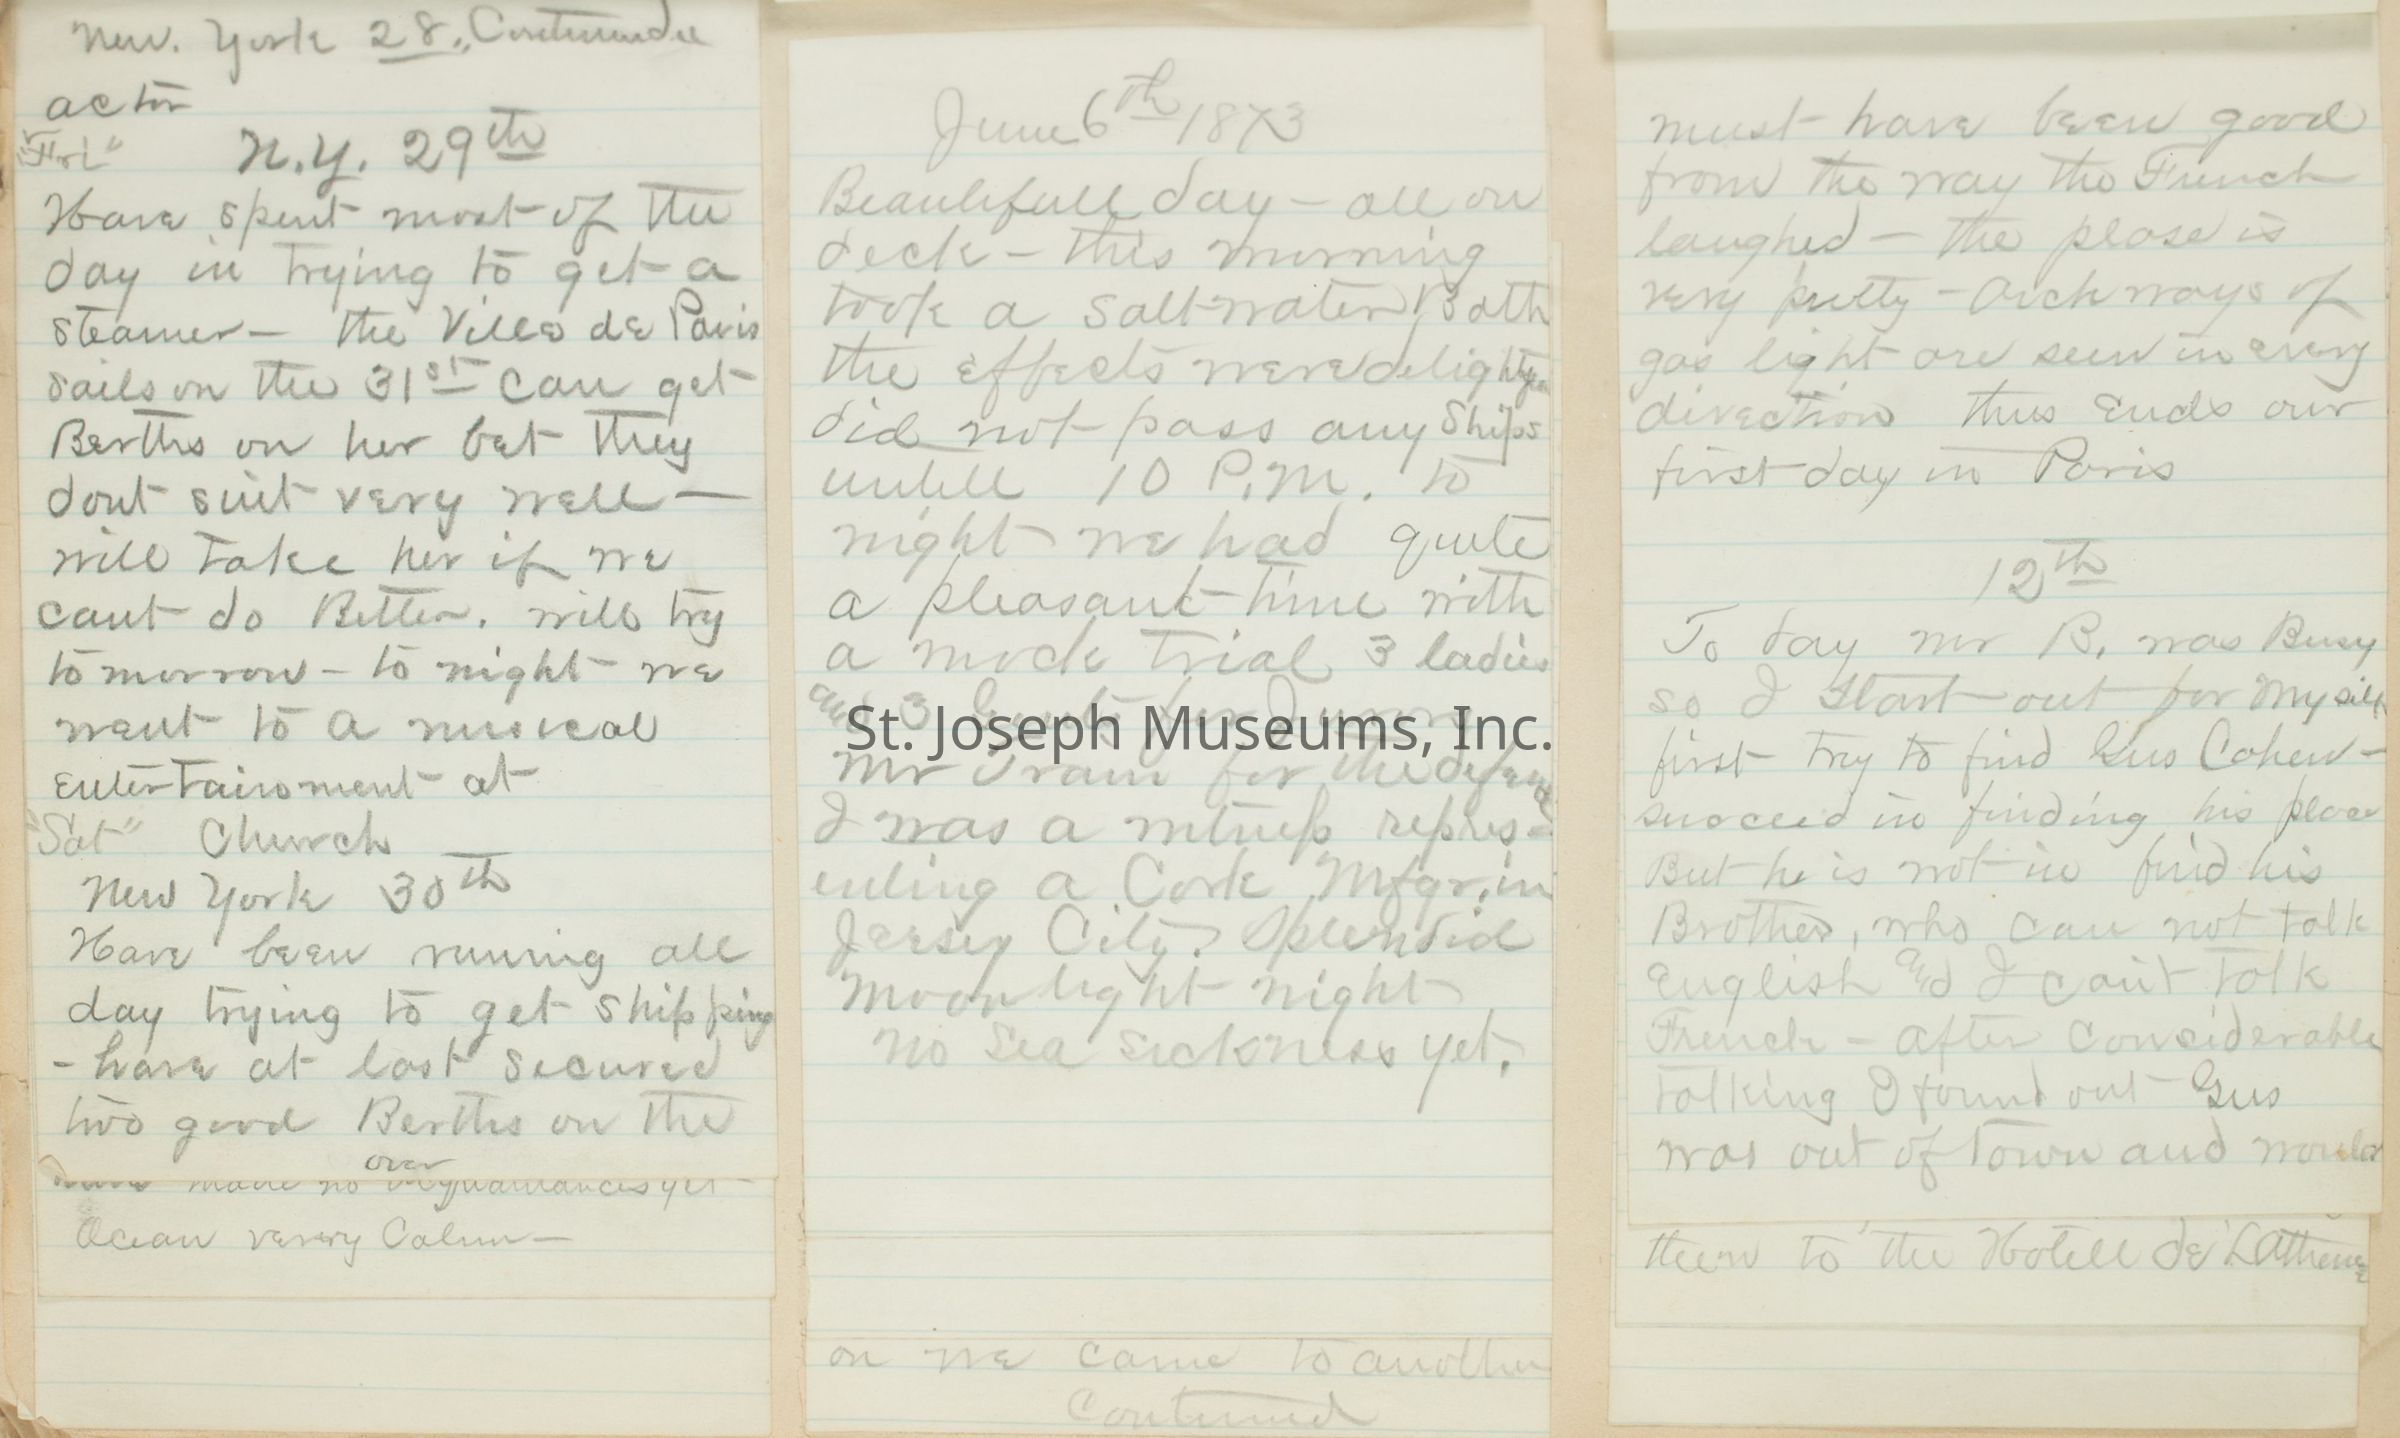 New. York 28,, Contenued
actor
"Fri" N.Y. 29th
Have spent most of the
day in trying to get a
steamer — the Ville de Paris
sails on the 31st can get
Berths on her bet they
dont suit very well —
will take her if we
cant do Better. will try
tomorrow — to night we
went to a musical
entertainment at
"Sat" Church
New York 30th
Have been runing all
day trying to get shipping
- have at last secured
two good Berths on the
over
made no yet -
Ocean verery Calm —
June 6th 1873
Beautifull day — all on
deck — this morning
took a salt water Bath
the effects were delightful
did not pass any ships
untill 10 P.M. to
night we had quite
a pleasant time with
a mock trial 3 ladies
and 3 Gents for Jurors
Mr Train for the defense
I was a witness repres-
enting a Cork Mfgr. in
Jersey City. Splendid
moonlight night
no sea sickness yet.
on we came to another
Contenued
must have been good
from the way the French
laughed — the plase is
very pretty — Archways of
gas light are seen in every
direction thus ends our
first day in Paris
12th
To day Mr B. was Busy
so I start out for My self
first try to find Gus Cohen —
succeed in finding his place
But he is not in find his
Brother, who can not talk
english and I can't talk
French — after considerable
talking I found out Gus
was out of town and would
them to the Hotell de L'Athenee
St. Joseph Museums, Inc.